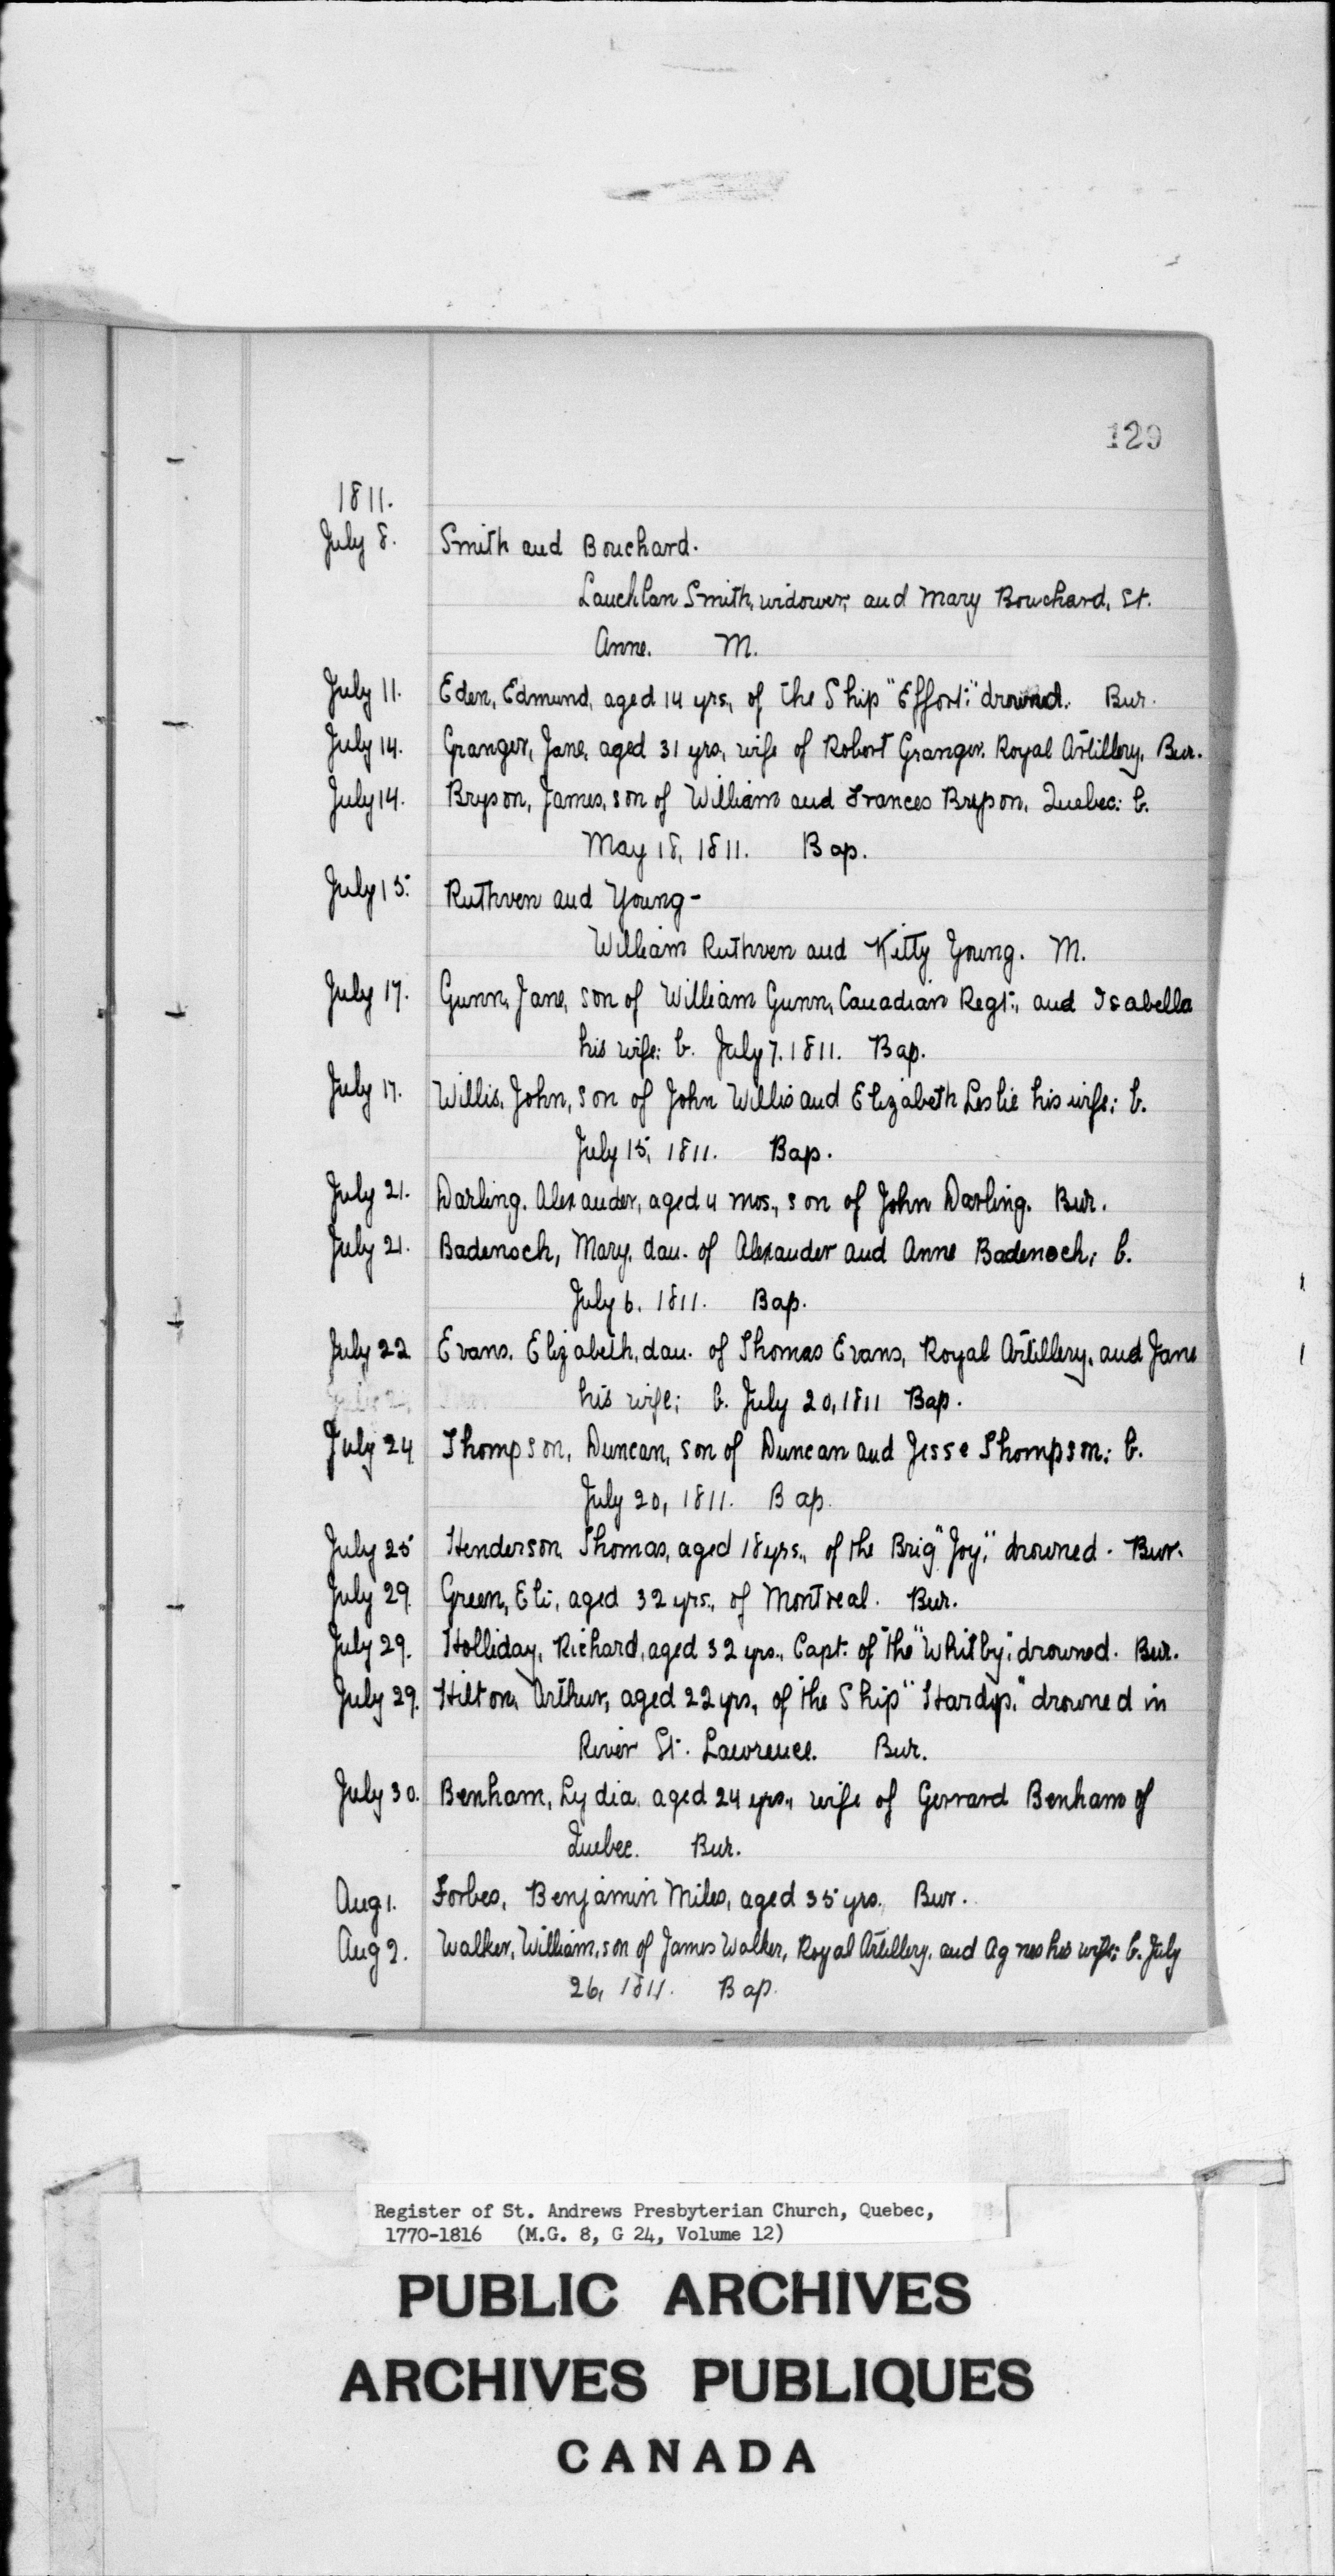 129
1811.
July 8. Smith and Bouchard.
Lauchlan Smith, widower, and Mary Bouchard, St.
Anne. M.
July 11. Eden, Edmund, aged 14 yrs., of the Ship "Effort," drowned. Bur.
July 14. Granger, Jane, aged 31 yrs, wife of Robert Granger. Royal Artillery. Bur.
July 14. Bryson, James, son of William and Frances Bryson, Quebec: b.
May 18, 1811. Bap.
July 15. Ruthven and Young-
William Ruthven and Kitty Young. M.
July 17. Gunn, Jane, son of William Gunn, Canadian Regt., and Isabella
his wife: b. July 7. 1811. Bap.
July 17. Willis, John, son of John Willis and Elizabeth Leslie his wife; b.
July 15, 1811. Bap.
July 21. Darling. Alexander, aged 4 mos., son of John Darling. Bur.
July 21. Badenoch, Mary, dau. of Alexander and Anne Badenoch; b.
July 6. 1811. Bap.
July 22 Evans. Elizabeth, dau. of Thomas Evans, Royal Artillery, and Jane
his wife; b. July 20, 1811 Bap.
July 24 Thompson, Duncan, son of Duncan and Jesse Thompson: b.
July 20, 1811. Bap.
July 25 Henderson Thomas, aged 18 yrs., of the Brig "Joy," drowned. Bur.
July 29. Green, Eli, aged 32 yrs., of Montreal. Bur.
July 29. Holliday, Richard, aged 32 yrs., Capt. of the "Whitby," drowned. Bur.
July 29. Hilton, Arthur, aged 22 yrs, of the Ship "Hardys," drowned in
River St. Lawrence. Bur.
July 30. Benham, Lydia, aged 24 yrs., wife of Gerrard Benham of
Quebec. Bur.
Aug 1. Forbes, Benjamin Miles, aged 35 yrs. Bur.
Aug 2. Walker, William, son of James Walker, Royal Artillery, and Agnes his wife: b. July
26, 1811. Bap.
Register of St. Andrews Presbyterian Church, Quebec,
1770-1816 (M.G. 8, G 24, Volume 12)
PUBLIC ARCHIVES
ARCHIVES PUBLIQUES
CANADA